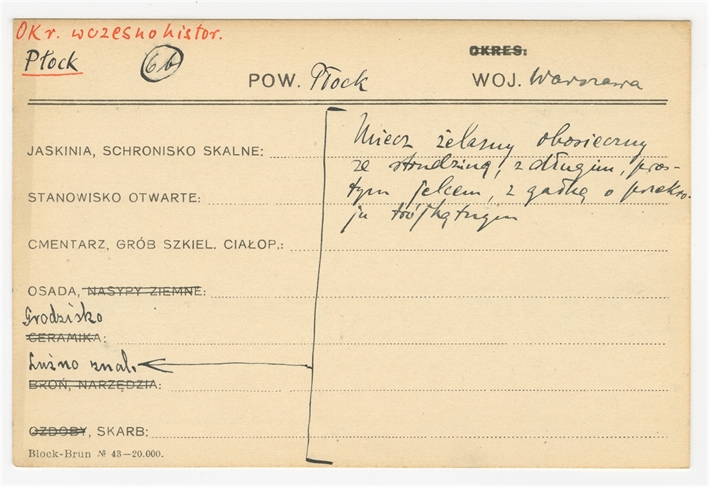 Okr. wczesnohistor.
Płock
6b
OKRES:
POW. Płock
WOJ. Warszawa
Miecz żelazny obosieczny
ze strudziną, z długim, pros-
tym jelcem, z gałką o przekro-
ju trójkątnym
JASKINIA, SCHRONISKO SKALNE:
STANOWISKO OTWARTE:
CMENTARZ, GRÓB SZKIEL. CIAŁOP.:
OSADA, NASYPY ZIEMNE:
Grodzisko
CERAMIKA:
Luźno znal.
BROŃ, NARZĘDZIA:
OZDOBY, SKARB:
Block-Brun № 43—20.000.